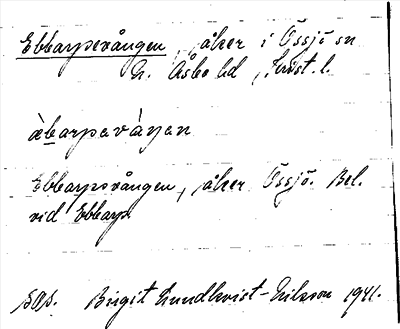 Ebbarpsvången, åker i Össjö sn
N. Åsbo hd, Krist. l.
àbarpsvàŋen
Ebbarpsvången, åker Össjö. Bel.
vid Ebbarp.
Birgit Lundkvist-Nilsson 1941.